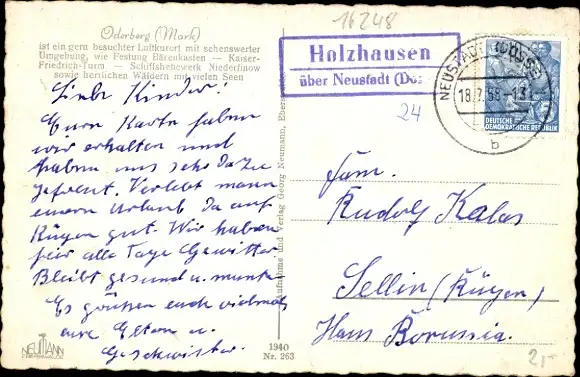 16248
Oderberg (Mark)
ist ein gern besuchter Luftkurort mit sehenswerter
Umgebung, wie Festung Bärenkasten — Kaiser-
Friedrich-Turm — Schiffshebewerk Niederfinow
sowie herrlichen Wäldern mit vielen Seen
Liebe Kinder!
Eure Karte haben
wir erhalten und
haben uns sehr dazu
gefreut. Verlebt man
euern Urlaub da auf
Rügen gut. Wir haben
hier alle Tage Gewitter.
Bleibt gesund u. munter
Es grüßen euch vielmals
eure Eltern u.
Geschwister.
Aufnahme und Verlag Georg Neumann, Ebers
NEUMANN
1940
Nr. 263
Holzhausen
über Neustadt (Do
24
NEUSTADT (DOSSE)
18.7.58-13
b
DEUTSCHE
DEMOKRATISCHE REPUBLIK
Fam.
Rudolf Kalas
Sellin (Rügen)
Haus Borussia.
2,-